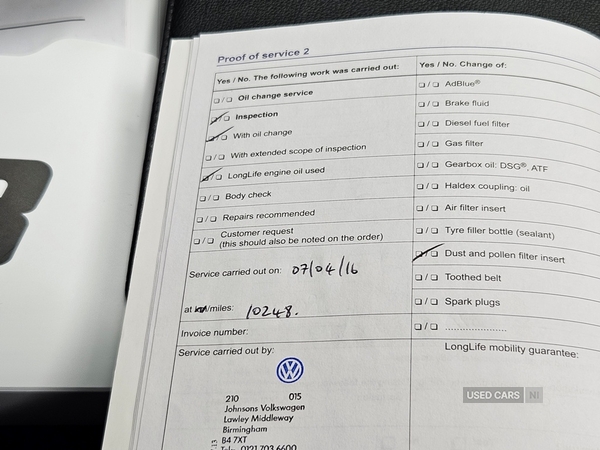 Proof of service 2
Yes / No. The following work was carried out:
❏ / ❏ Oil change service
❏ / ❏ Inspection
❏ / ❏ With oil change
❏ / ❏ With extended scope of inspection
❏ / ❏ LongLife engine oil used
❏ / ❏ Body check
❏ / ❏ Repairs recommended
❏ / ❏ Customer request
(this should also be noted on the order)
Service carried out on: 07/04/16
at km/miles: 10248.
Invoice number:
Service carried out by:
210 015
Johnsons Volkswagen
Lawley Middleway
Birmingham
B4 7XT
Tel: 0121 703 6600
Yes / No. Change of:
❏ / ❏ AdBlue®
❏ / ❏ Brake fluid
❏ / ❏ Diesel fuel filter
❏ / ❏ Gas filter
❏ / ❏ Gearbox oil: DSG®, ATF
❏ / ❏ Haldex coupling: oil
❏ / ❏ Air filter insert
❏ / ❏ Tyre filler bottle (sealant)
❏ / ❏ Dust and pollen filter insert
❏ / ❏ Toothed belt
❏ / ❏ Spark plugs
❏ / ❏ ......................
LongLife mobility guarantee:
USED CARS NI